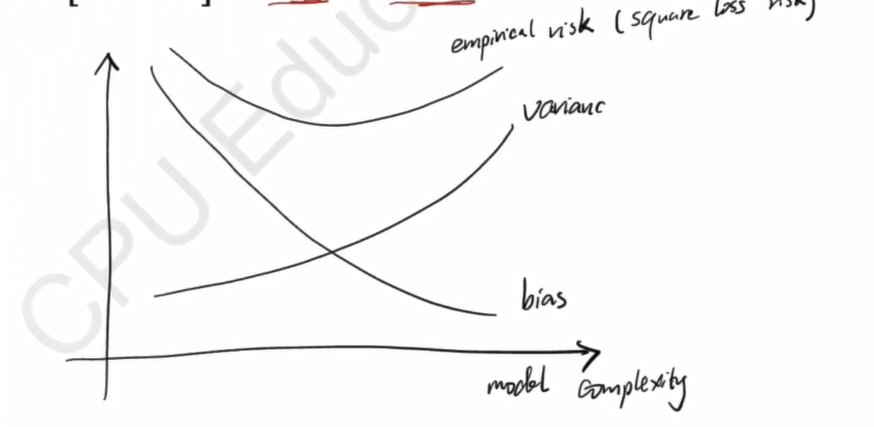 empirical risk (square loss risk)
varianc
bias
model complexity
CPU Educ